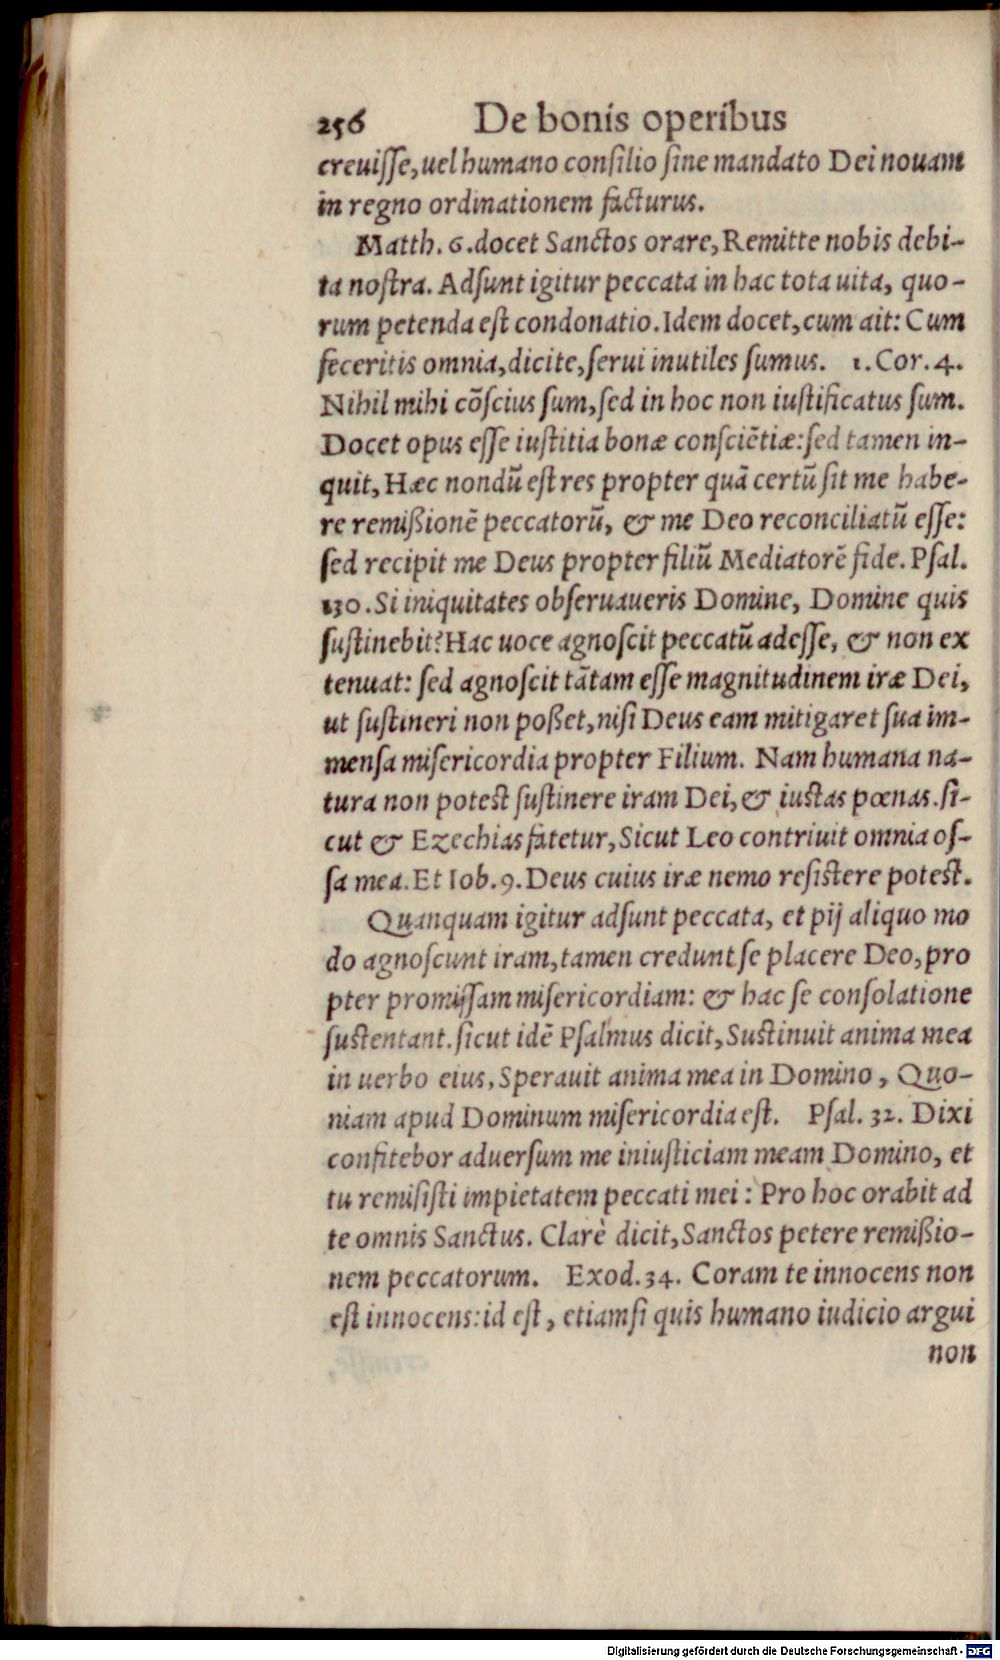 256 De bonis operibus
creuisse, uel humano consilio sine mandato Dei nouam
in regno ordinationem facturus.
Matth. 6. docet Sanctos orare, Remitte nobis debi-
ta nostra. Adsunt igitur peccata in hac tota uita, quo-
rum petenda est condonatio. Idem docet, cum ait: Cum
feceritis omnia, dicite, serui inutiles sumus. 1. Cor. 4.
Nihil mihi cõscius sum, sed in hoc non iustificatus sum.
Docet opus esse iustitia bonæ consciẽtiæ: sed tamen in-
quit, Hæc nondũ est res propter quã certũ sit me habe-
re remißionẽ peccatorũ, & me Deo reconciliatũ esse:
sed recipit me Deus propter filiũ Mediatorẽ fide. Psal.
130. Si iniquitates obseruaueris Domine, Domine quis
sustinebit? Hac uoce agnoscit peccatũ adesse, & non ex
tenuat: sed agnoscit tãtam esse magnitudinem iræ Dei,
ut sustineri non poßet, nisi Deus eam mitigaret sua im-
mensa misericordia propter Filium. Nam humana na-
tura non potest sustinere iram Dei, & iustas pœnas. si-
cut & Ezechias fatetur, Sicut Leo contriuit omnia os-
sa mea. Et Iob. 9. Deus cuius iræ nemo resistere potest.
Quanquam igitur adsunt peccata, et pij aliquo mo
do agnoscunt iram, tamen credunt se placere Deo, pro
pter promissam misericordiam: & hac se consolatione
sustentant. sicut idẽ Psalmus dicit, Sustinuit anima mea
in uerbo eius, Sperauit anima mea in Domino, Quo-
niam apud Dominum misericordia est. Psal. 32. Dixi
confitebor aduersum me iniusticiam meam Domino, et
tu remisisti impietatem peccati mei: Pro hoc orabit ad
te omnis Sanctus. Clarè dicit, Sanctos petere remißio-
nem peccatorum. Exod. 34. Coram te innocens non
est innocens: id est, etiamsi quis humano iudicio argui
non
Digitalisierung gefördert durch die Deutsche Forschungsgemeinschaft - DFG